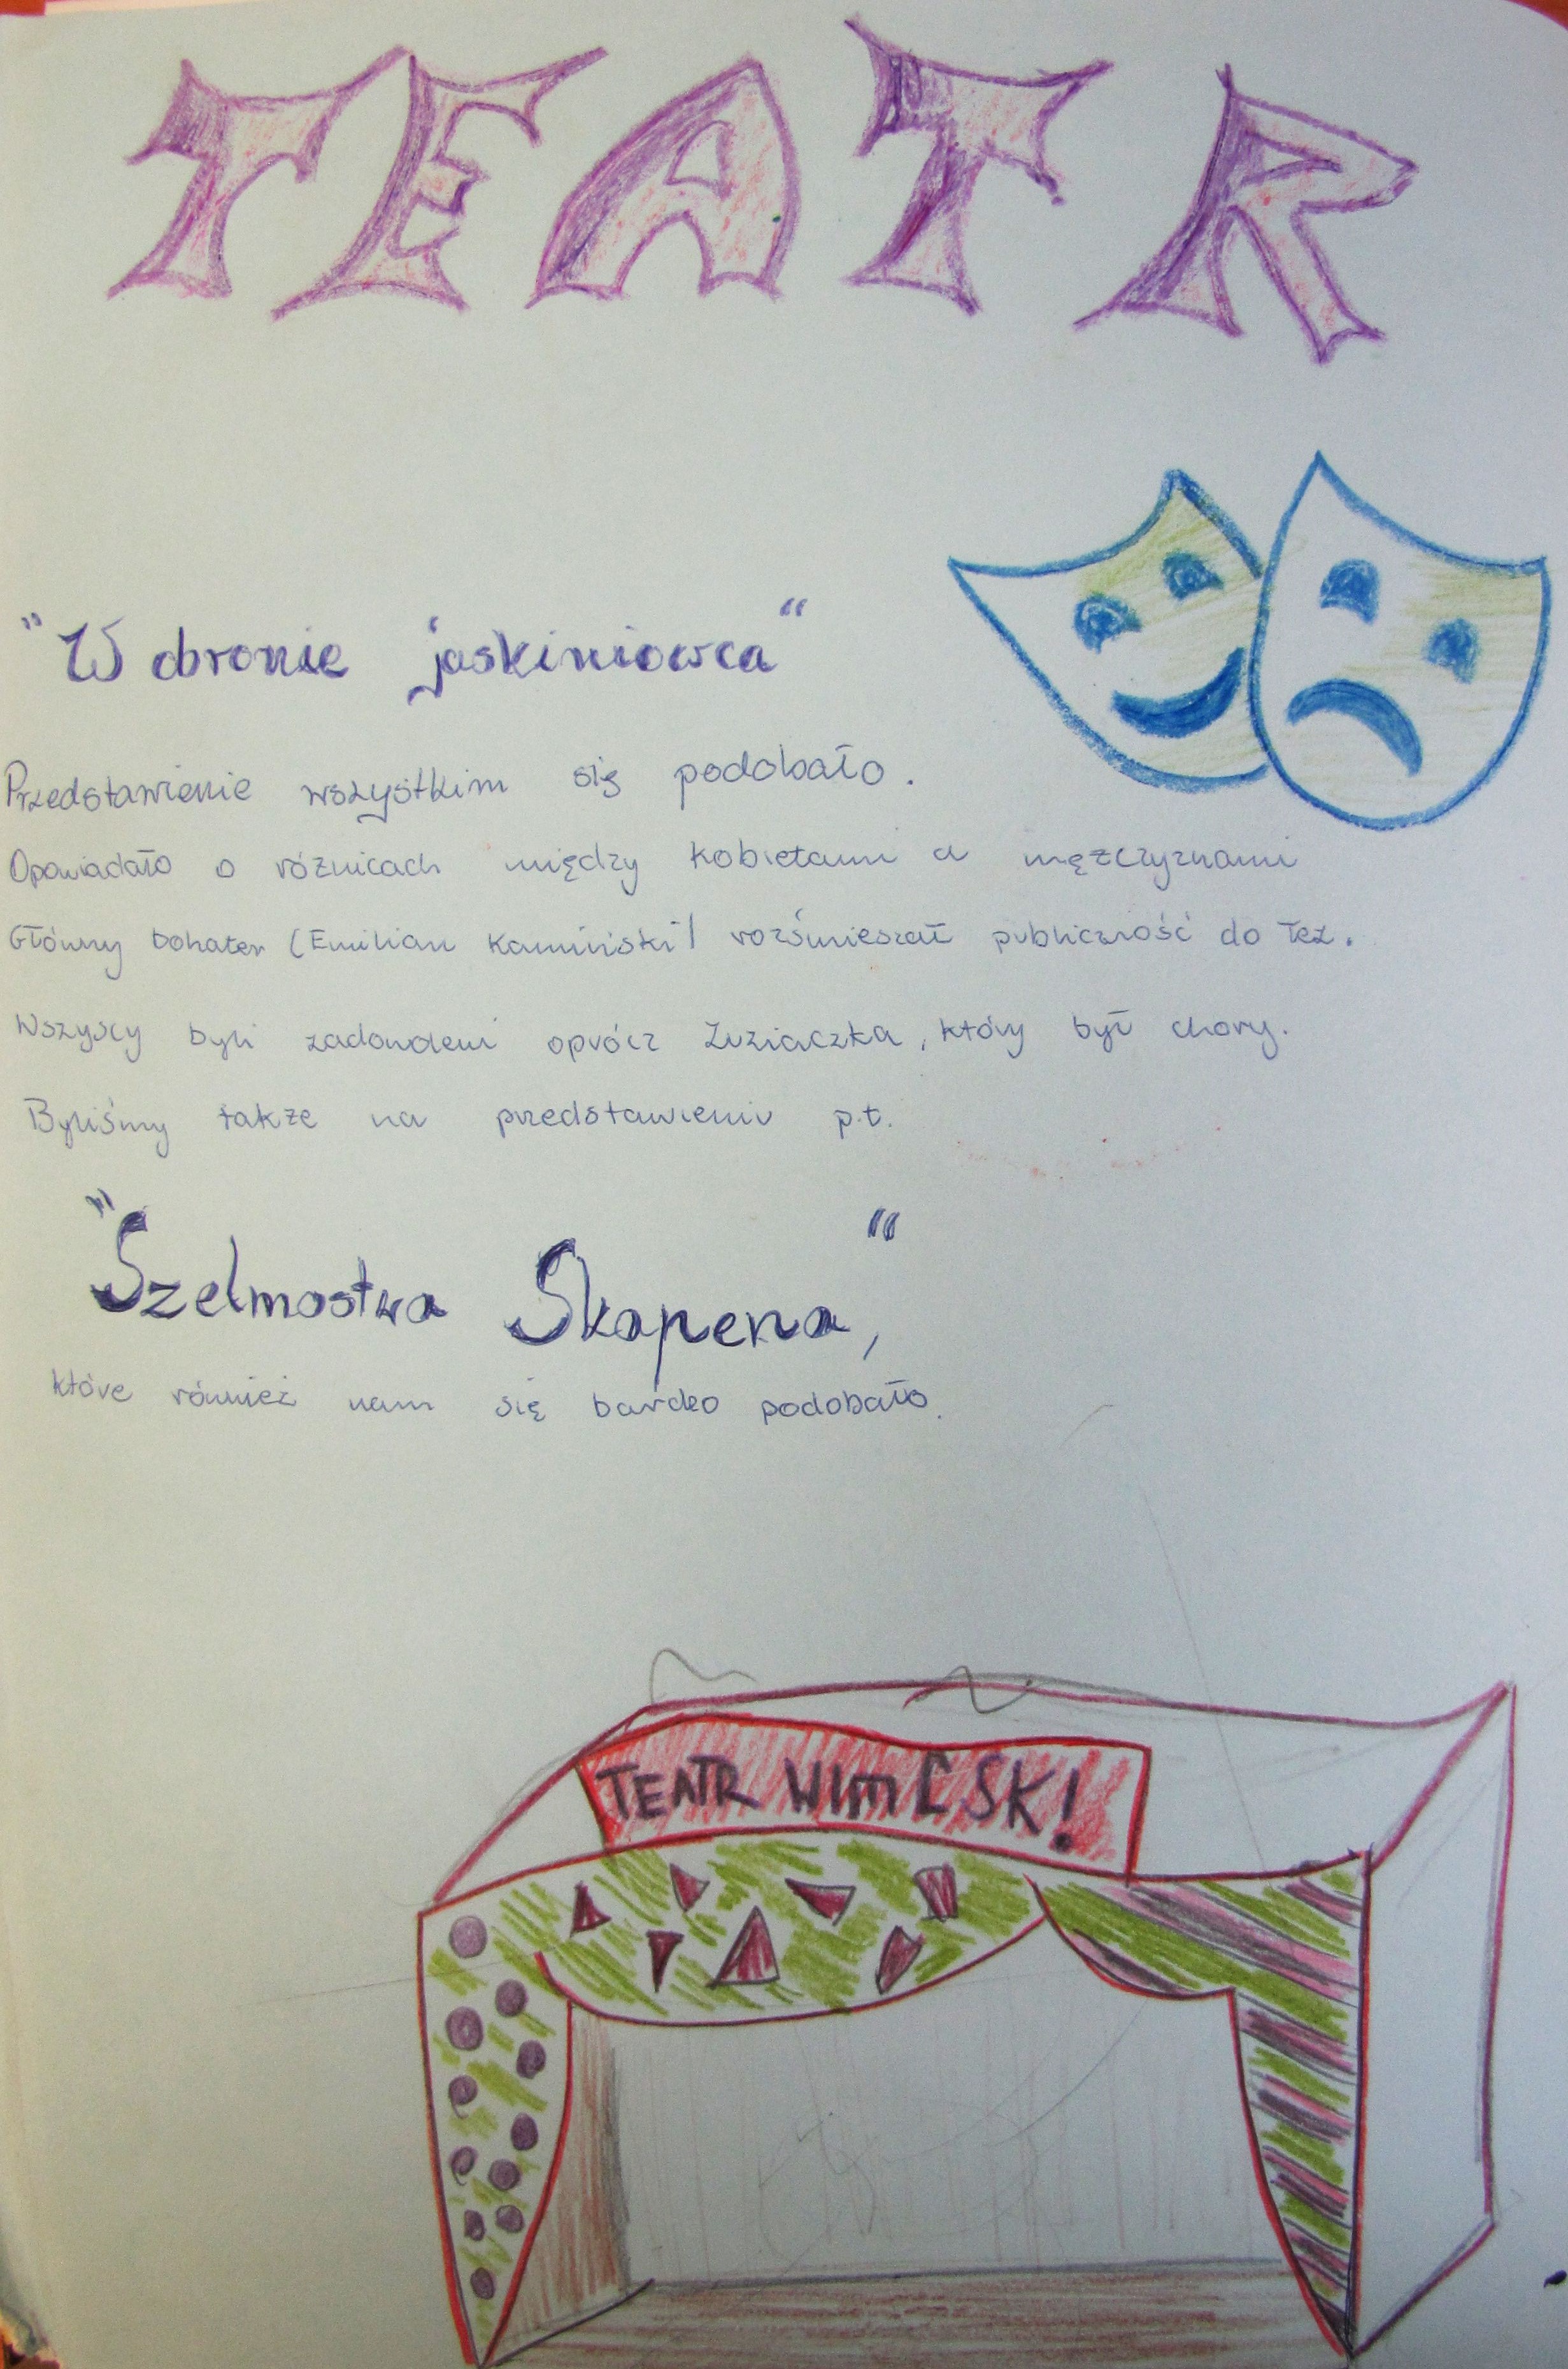 TEATR
"W obronie jaskiniowca"
Przedstawienie wszystkim się podobało.
Opowiadało o różnicach między kobietami a mężczyznami
Główny bohater (Emilian Kamiński) rozśmieszał publiczność do łez.
Wszyscy byli zadowoleni oprócz Zuziaczka, który był chory.
Byliśmy także na przedstawieniu p.t.
"Szelmostwa Skapena",
które również nam się bardzo podobało.
TEATR WIM CSK!